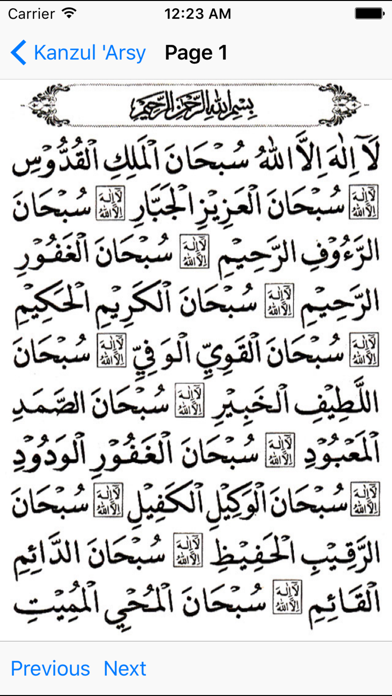 Carrier 12:23 AM
Kanzul 'Arsy Page 1
بِسْمِ اللهِ الرَّحْمٰنِ الرَّحِيْمِ
لَآ اِلٰهَ اِلَّا اللهُ سُبْحَانَ الْمَلِكِ الْقُدُّوْسِ
لَآ اِلٰهَ اِلَّا اللهُ سُبْحَانَ الْعَزِيْزِ الْجَبَّارِ لَآ اِلٰهَ اِلَّا اللهُ سُبْحَانَ
الرَّءُوْفِ الرَّحِيْمِ لَآ اِلٰهَ اِلَّا اللهُ سُبْحَانَ الْغَفُوْرِ
الرَّحِيْمِ لَآ اِلٰهَ اِلَّا اللهُ سُبْحَانَ الْكَرِيْمِ الْحَكِيْمِ
لَآ اِلٰهَ اِلَّا اللهُ سُبْحَانَ الْقَوِيِّ الْوَفِيِّ لَآ اِلٰهَ اِلَّا اللهُ سُبْحَانَ
اللَّطِيْفِ الْخَبِيْرِ لَآ اِلٰهَ اِلَّا اللهُ سُبْحَانَ الصَّمَدِ
الْمَعْبُوْدِ لَآ اِلٰهَ اِلَّا اللهُ سُبْحَانَ الْغَفُوْرِ الْوَدُوْدِ
لَآ اِلٰهَ اِلَّا اللهُ سُبْحَانَ الْوَكِيْلِ الْكَفِيْلِ لَآ اِلٰهَ اِلَّا اللهُ سُبْحَانَ
الرَّقِيْبِ الْحَفِيْظِ لَآ اِلٰهَ اِلَّا اللهُ سُبْحَانَ الدَّآئِمِ
الْقَآئِمِ لَآ اِلٰهَ اِلَّا اللهُ سُبْحَانَ الْمُحْيِ الْمُمِيْتِ
Previous Next